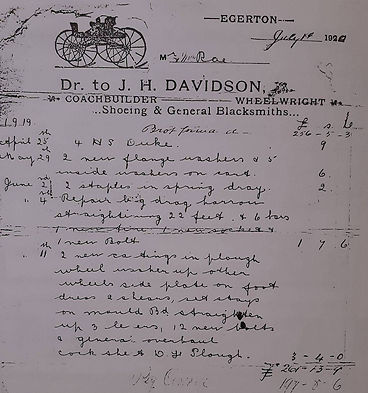 EGERTON
July 1st 1920
M
Dr. to J. H. DAVIDSON,
COACHBUILDER WHEELWRIGHT
...Shoeing & General Blacksmiths...
1919 £ s. d.
256 - 5 - 3
April 25th 4 N S Duke. 9
May 29 2 new flange washers & 5
inside washers on cart. 6.
June 2nd 2 staples in spring dray. 2.
" 4 Repair big drag harrow
straightening 22 feet. & 6 bars
1 new Bolt 1 7 6
" 11 2 new castings in plough
wheel washer up other
wheels side plate on foot
dress 2 shears, set stays
on mould Bd straighten
up 3 12 new bolts
a general overhaul
Plough. 3 - 4 - 0
£ 261 - 13 - 9
197 - 8 - 6